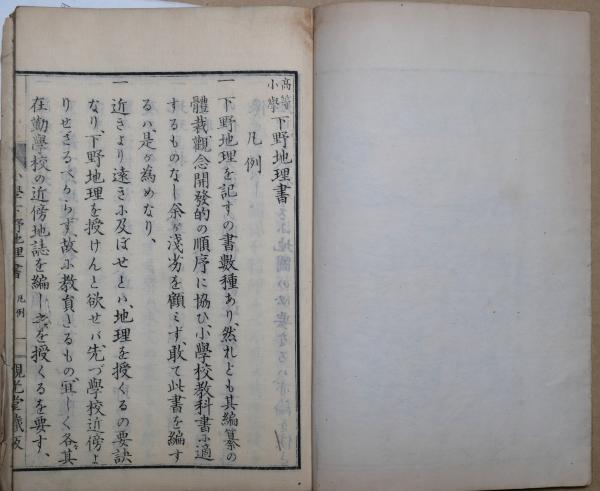 高等小學 下野地理書
凡例
一 下野地理を記すの書數種あり、然れども其編纂の
體裁、觀念開發的の順序に協ひ、小學校教科書ニ適
するものなし、余ガ淺劣を顧ミず、敢て此書を編す
るハ、是ガ為めなり、
一 近きより遠きニ及ぼせとハ、地理を授くるの要訣
なり、下野地理を授けんと欲せバ、先づ學校近傍よ
りせざるべからず、故ニ教員たるもの宜しく各其
在勤學校の近傍地誌を編し之を授くるを要す、
小學下野地理書 凡例 一 觀光堂藏版